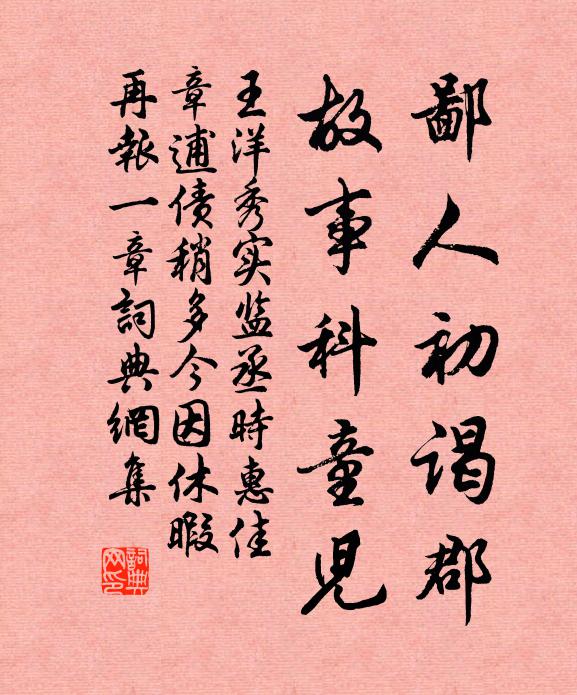 鄙人初谒郡
故事科童児
王洋秀实监丞時惠佳
章逋债稍多今因休暇
再報一章詞典網集
詞典
网印